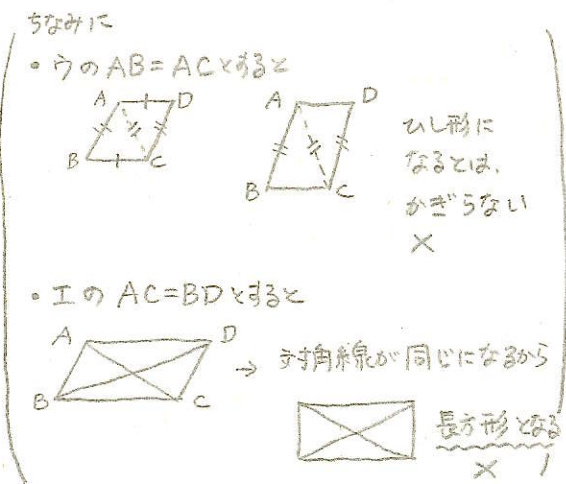 ちなみに
・ウのAB=ACとすると
A D
B C
A D
B C
ひし形に
なるとは、
かぎらない
×
・エのAC=BDとすると
A D
B C
→ 対角線が同じになるから
長方形となる
×